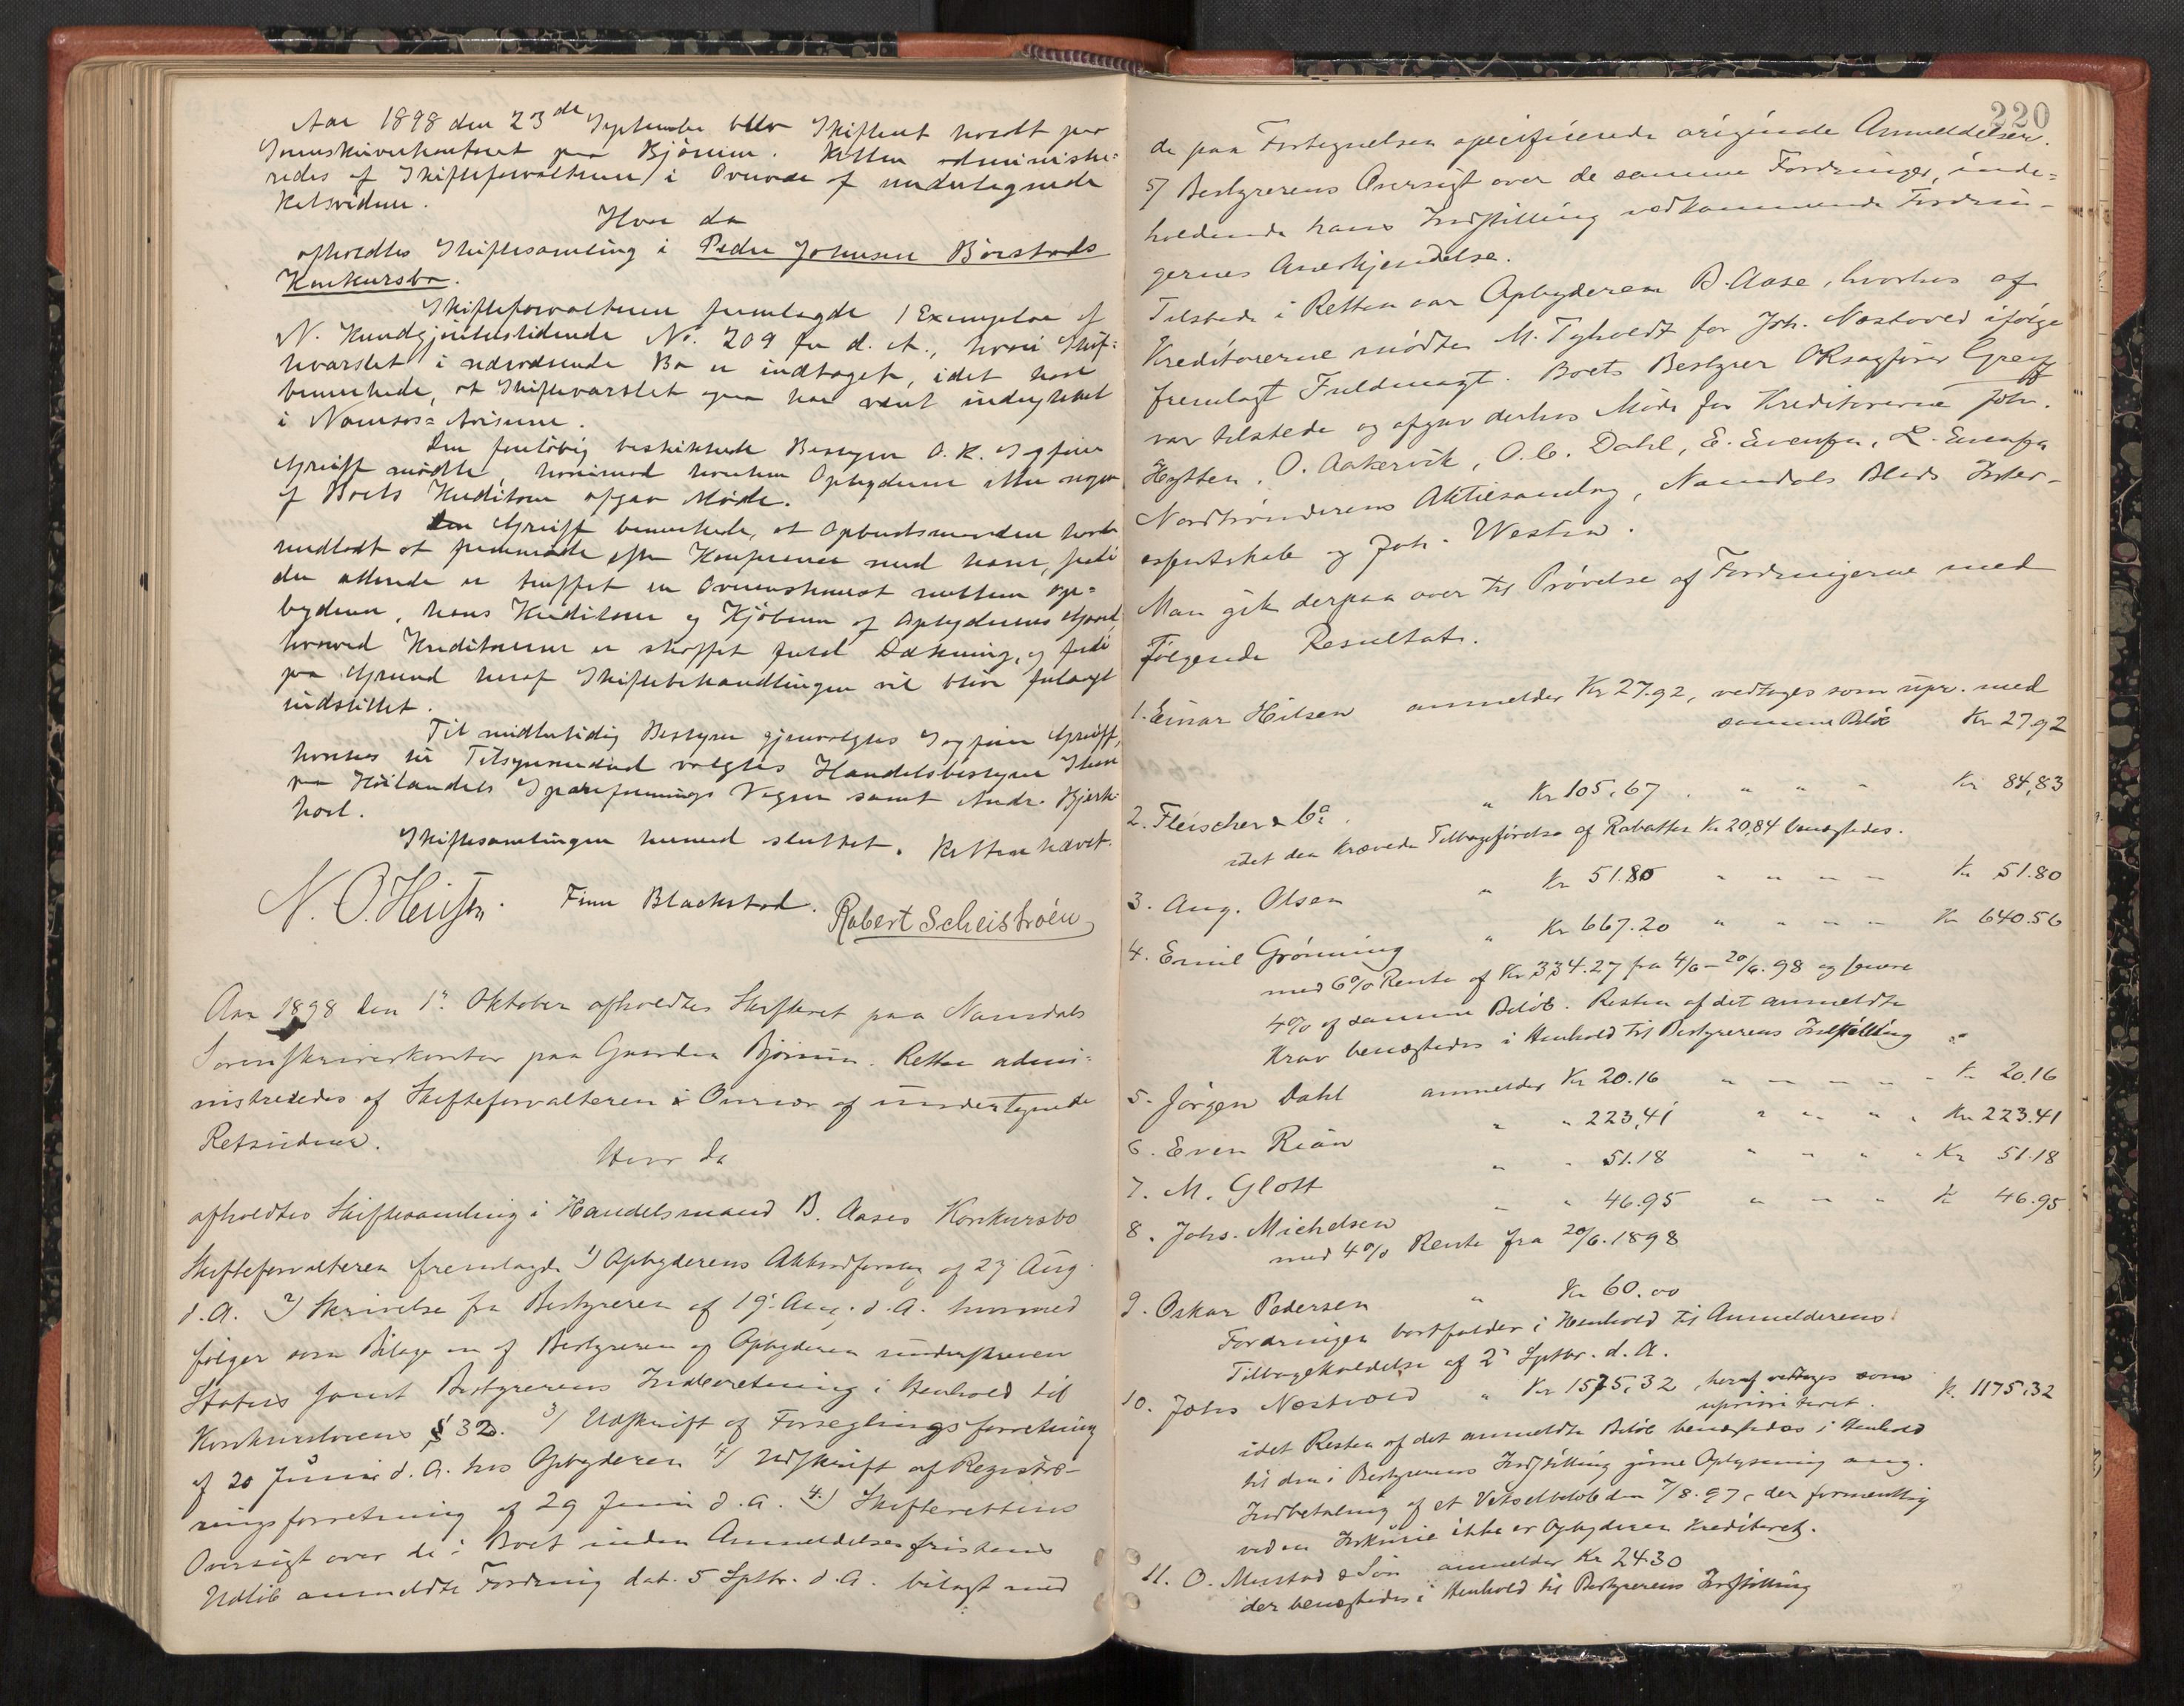 Aar 1898 den 23de September blev Skifteret holdt paa
Sorenskriverkontoret paa Bjørum. Retten administre=
redes af Skifteforvalteren i Overvær af undertegnede
Retsvidner.
Hvor da
afholdtes Skiftesamling i Peder Johnsen Børstads
Konkursbo.
Skifteforvalteren fremlagde 1 Exemplar af
N. Kundgjørelsestidende No. 209 for d. A., hvori Skif=
tevarslet i nærværende Bo er indtaget, idet han
bemærkede, at Skiftevarslet ogsaa har været indrykket
i Namsos= Aviserne.
Den foreløbig beskikkede Bestyrer O. R. Sagfører
Greiff mødte hvorimod hverken Opbyderen eller nogen
af Boets Kreditorer afgav Møde.
Greiff bemærkede, at Opbudsmanden havde
undladt at fremmøde efter Konference med ham, fordi
der allerede er truffet en Overenskomst mellem Op=
byderen, hans Kreditorer og Kjøberen af Opbyderens Gaard,
hvorved Kreditorerne er skaffet fuld Dækning, og fordi
paa Grund heraf Skiftebehandlingen vil blive forlangt
indstillet.
Til midlertidig Bestyrer gjenvalgtes Sagfører Greiff,
hvorhos til Tilsynsmænd valgtes Handelsbestyrer
paa Høilandets Spareforenings Vegne samt Andr. Bjerk=
hol.
Skiftesamlingen hermed sluttet. Retten hævet.
Finn Blackstad. Robert Scheistrøen
Aar 1898 den 1ste Oktober afholdtes Skifteret paa Namdals
Sorenskriverkontor paa Gaarden Bjørum. Retten admi=
nistreredes af Skifteforvalteren i Overvær af undertegnede
Retsvidner.
Hvor da
afholdtes Skiftesamling i Handelsmand B. Aases Konkursbo
Skifteforvalteren fremlagde 1) Opbyderens Akkordforslag af 27 Aug.
d.A. 2) Skrivelse fra Bestyreren af 19. Aug. d.A. hvormed
følger som Bilage en af Bestyreren og Opbyderen underskreven
Status samt Bestyrerens Indberetning i Henhold til
Konkurslovens § 32. 3) Udskrift af Forseglingsforretning
af 20 Juni d.A. hos Opbyderen 4) Udskrift af Registre-
ringsforretning af 29 Juni d.A. 4) Skifterettens
Oversigt over de i Boet inden Anmeldelsesfristens
Udløb anmeldte Fordring dat. 5 Septbr. d.A. bilagt med
220
de paa Fortegnelsen specificerede originale Anmeldelser.
5) Bestyrerens Oversigt over de samme Fordringer, inde=
holdende hans Indstilling vedkommende Fordrin-
gernes Anerkjendelse.
Tilstede i Retten var Opbyderen B. Aase, hvorhos af
Kreditorerne mødte M. Tyholdt for Joh. Nestvold ifølge
fremlagt Fuldmagt. Boets Bestyrer ORsagfører Greiff
var tilstede og afgav derhos Møde for Kreditorerne Joh.
Hytten, O. Aakervik, O. C. Dahl, E. Svensen, L. Svensen
Nordtrønderens Aktiesamlag, Namdals Blads Inter-
essentskab og Joh. Westin.
Man gik derpaa over til Prøvelse af Fordringerne med
Følgende Resultat.
1. Einar Hilsen anmelder Kr 27.92, vedtoges som upr. med
samme Beløb Kr 27.92
2. Fleischer & Co. " Kr 105,67 " " " Kr 84,83
idet den krævede Tilbageførelse af Rabatten Kr 20,84 benægtedes.
3. Aug. Olsen " Kr 51.80 " " " " Kr 51.80
4. Emil Grønning " Kr 667.20 " " " " Kr 640.56
med 6% Rente af Kr 334.27 fra 4/6 – 20/6. 98 og senere
4% af samme Beløb. Resten af det anmeldte
Krav benægtedes i Henhold til Bestyrerens Indstilling
5. Jørgen Dahl anmelder Kr 20.16 " " " " Kr 20.16
6. Even Rian " " 223,41 " " " " Kr 223.41
7. M. Glott " " 51.18 " " " " Kr 51.18
8. Johs. Michelsen " " 46.95 " " " Kr 46.95
med 4% Rente fra 20/6. 1898
9. Oskar Pedersen " Kr 60.00
Fordringen bortfalder i Henhold til Anmelderens
Tilbagekaldelse af 2. Septbr. d.A.
10. Johs Nestvold " Kr 1575,32, heraf vedtoges som
uprioriteret K. 1175,32
idet Resten af det anmeldte Beløb benægtedes i Henhold
til den i Bestyrerens Indstilling givne Oplysning ang.
Indbetaling af et Vekselbeløb den 7/8. 97, der formentlig
ved en Inkurie ikke er Opbyderen krediteret.
11. O. Mustad & Søn anmelder Kr 24.30
der benægtedes i Henhold til Bestyrerens Indstilling